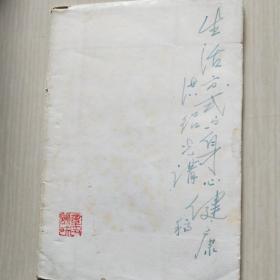 生活方式与身心健康
洪绍光讲稿